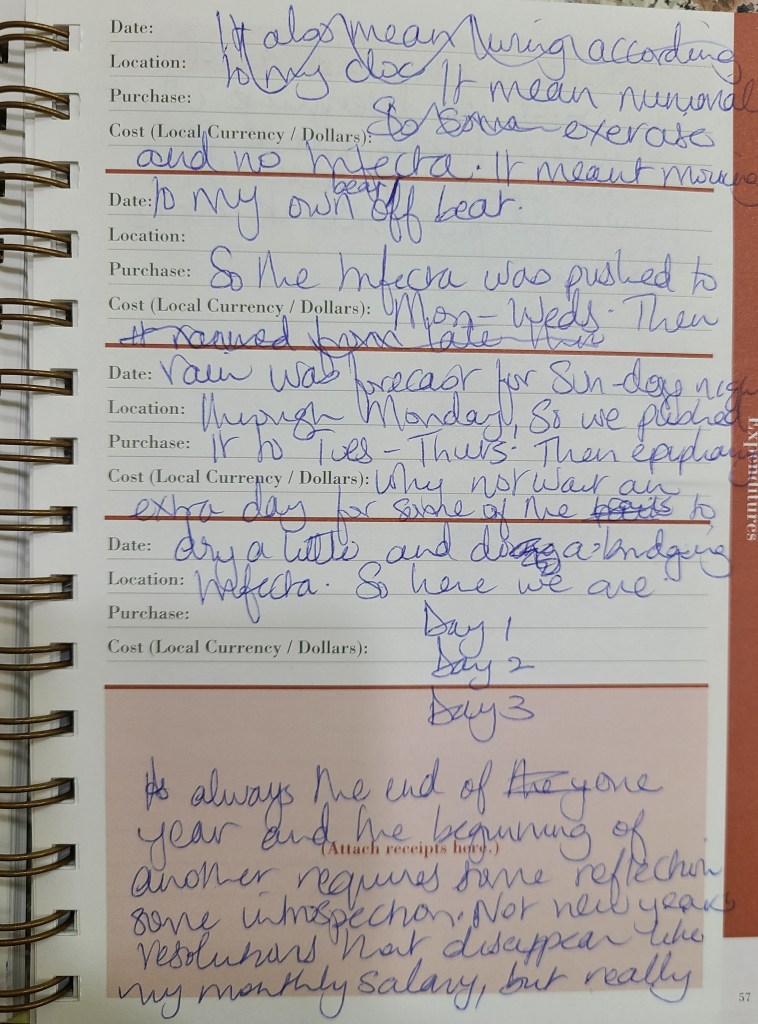 Date: It also mean living according
Location: to my doc It mean minimal
Purchase:
Cost (Local Currency / Dollars): So some exercise
and no trifecta. It meant moving
Date: to my own off beat beat.
Location:
Purchase: So the trifecta was pushed to
Cost (Local Currency / Dollars): Mon - Weds. Then
it rained from late
Date: rain was forecast for Sun-day nigh
Location: through Monday, So we pushed
Purchase: it to Tues - Thurs. Then epiphany
Cost (Local Currency / Dollars): Why not wait an
extra day for some of the to
Date: dry a little and a bridging
Location: trefecta. So here we are
Purchase: Day 1
Cost (Local Currency / Dollars): Day 2
Day 3
always the end of the yone
year and the beginning of
(Attach receipts here.)
another requires some reflection
some introspection. Not new years
resolutions that disappear like
my monthly salary, but really
Expenditures
57